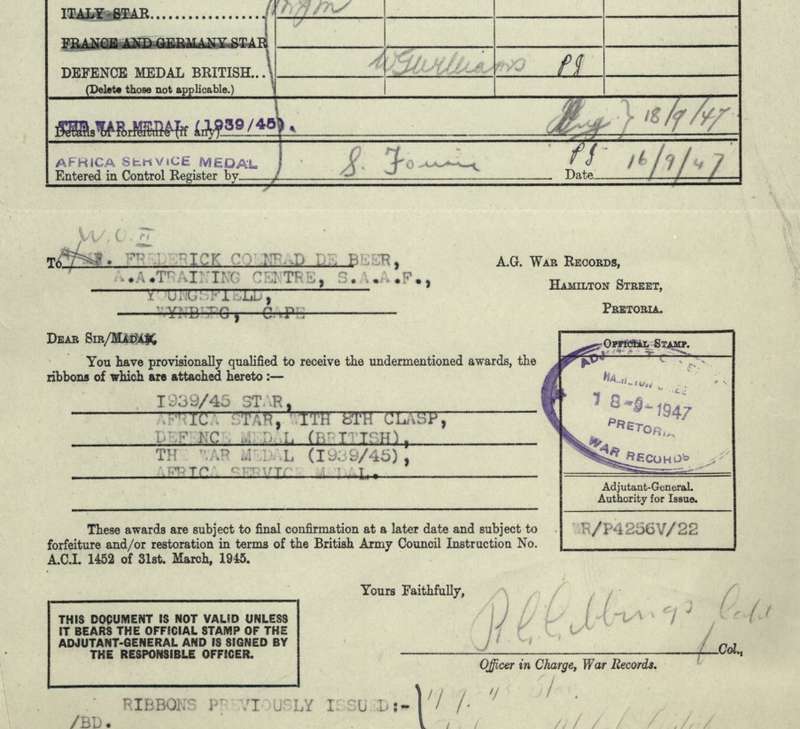 ITALY STAR
FRANCE AND GERMANY STAR
DEFENCE MEDAL BRITISH... WGWilliams PJ
(Delete those not applicable.)
THE WAR MEDAL (1939/45).
Details of forfeiture (if any) 18/9/47
AFRICA SERVICE MEDAL PJ
Entered in Control Register by S. Fourie Date 16/9/47
W.O. II
To FREDERICK COENRAD DE BEER,
A.A.TRAINING CENTRE, S.A.A.F.,
YOUNGSFIELD,
WYNBERG, CAPE
A.G. WAR RECORDS,
HAMILTON STREET,
PRETORIA.
DEAR SIR/MADAM,
You have provisionally qualified to receive the undermentioned awards, the
ribbons of which are attached hereto :—
I939/45 STAR,
AFRICA STAR, WITH 8TH CLASP,
DEFENCE MEDAL (BRITISH),
THE WAR MEDAL (I939/45),
AFRICA SERVICE MEDAL.
OFFICIAL STAMP.
18-9-1947
PRETORIA
WAR RECORDS
Adjutant-General.
Authority for Issue.
WR/P4256V/22
These awards are subject to final confirmation at a later date and subject to
forfeiture and/or restoration in terms of the British Army Council Instruction No.
A.C.I. 1452 of 31st. March, 1945.
Yours Faithfully,
Col.,
Officer in Charge, War Records.
THIS DOCUMENT IS NOT VALID UNLESS
IT BEARS THE OFFICIAL STAMP OF THE
ADJUTANT-GENERAL AND IS SIGNED BY
THE RESPONSIBLE OFFICER.
RIBBONS PREVIOUSLY ISSUED:-
/BD.